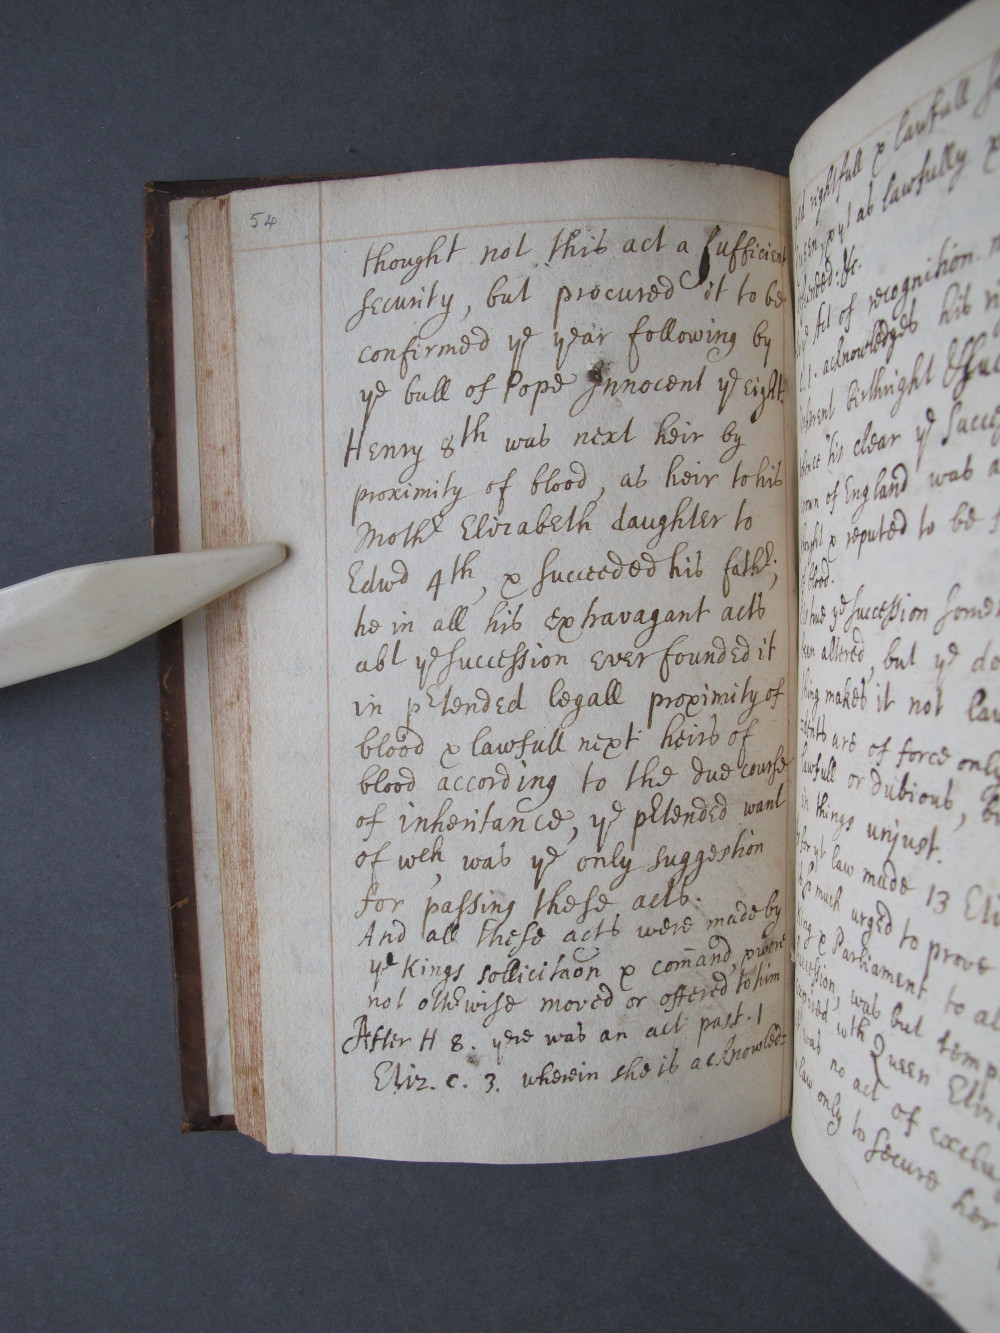 54
thought not this act a sufficient
security, but procured it to be
confirmed ye year following by
ye bull of Pope Innocent ye Eight.
Henry 8th was next heir by
proximity of blood, as heir to his
Mothr Elizabeth daughter to
Edwd 4th, x succeeded his fathr;
he in all his extravagant acts
abt ye succession ever founded it
in pEtended legall proximity of
blood x lawfull next heirs of
blood according to the due course
of inheritance, ye pEtended want
of wch, was ye only suggestion
for passing these acts.
And all these acts were made by
ye Kings sollicitaon x comand, x were
not othrwise moved or offered to him
After H 8. yere was an act past. 1
Eliz. c. 3. wherein she is acknowled=
rightfull x lawfull
x yt as lawfully x
&c.
Act of recognition
1. acknowledges his
birthright
his clear ye succ
of England was a
x reputed to be
blood.
ye succession some
altered, but ye de
makes it not law
are of force only
or dubious, bu
in things unjust.
for yt law made 13 Eliz
much urged to prove
x Parliament to al
was but temp
wth Queen Eliz
was no act of exclus
law only to secure her